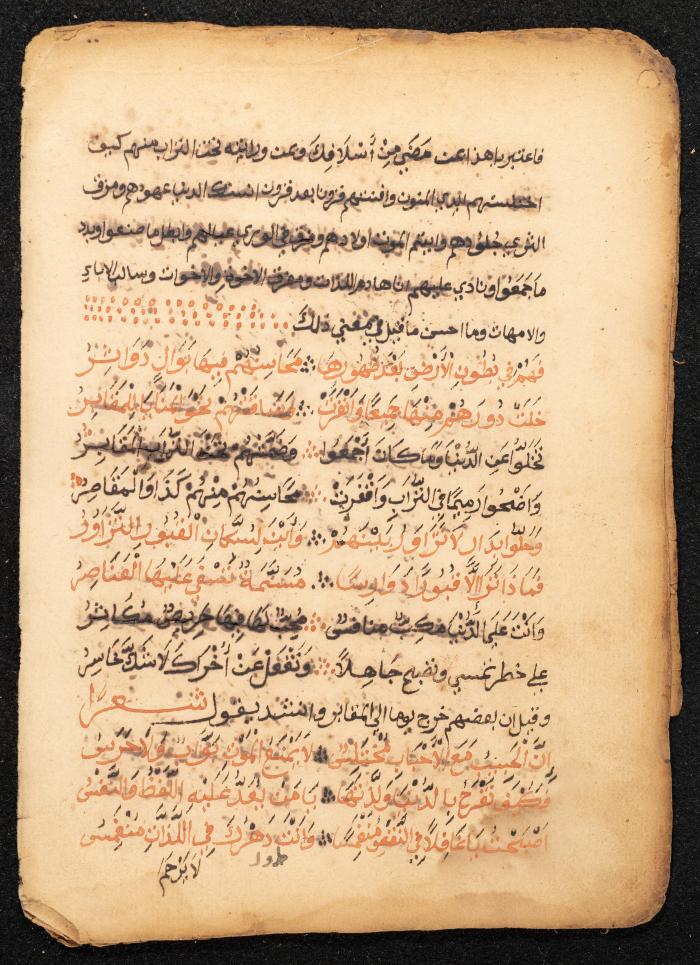 فاعتبر يا هذا عن مَضَي مِنْ أَسْلافِكَ وعن وراثته تحت التراب منهم كيف
اختلستهم ايدي المنون وافنتهم قرون بعد قرون انستك الدنيا عهودهم ومزق
الثري جلودهم وايتم الموت اولادهم وفرق في الوري عيالهم وابطل ما صنعوا وبدد
ما جَمَعُوا ونادي عليهم انا هادم اللذات ومفرق الاخوة والاخوات وسالب الاباء
والامهات وما احسن ما قيل في معني ذلك
فَهُمْ في بُطُونِ الأَرْضِ بَعْدَ ظُهُورِهَا مَحَاسِنُهُمْ فِيهَا بَوَالٍ دَوَاثِرُ
خَلَتْ دورَهُمْ مِنْهَا جَمِيعًا وَأَقْفَرَتْ وَسَاقَتْهُمْ نَحْوَ الْمَنَايَا الْمَقَابِرُ
تَخَلَّوْا عَنِ الدُّنْيَا وَمَا كَانَ أَجْمَعُوا وَضَمَّتْهُمْ تَحْتَ التُّرَابِ الْمَقَابِرُ
وَاضْحُوا رَمِيمًا فِي التُّرَابِ وَاقْفَرَتْ مَحَاسِنُهُمْ مِنْهُمْ كَذَا وَالْمَقَاصِرُ
وَحَلُّوا بِدَارٍ لَا تَزَاوُرَ بَيْنَهُمْ وَأَنَّي لِسُكَّانِ الْقُبُورِ التَّزَاوُرُ
فَمَا ذَا تَرَا إِلَّا قُبُورًا دَوَارِسًا مُسَنَّمَةً تَسْفِي عَلَيْهَا
وَانْتَ عَلَي الدُّنْيَا مُكِبٌّ مُنَافِسٌ مُحِبٌّ لَهَا فِيهَا حَرِيصٌ مُكَاثِرُ
علي خطر تمسي وتصبح جَاهِلًا وَتَغْفَلُ عَنْ أُخْرَاكَ لَا شَكَّ خَاسِرُ
وقيل ان بعضهم خرج يوما الي المقابر وانشد يقول شعرًا
انَّ الْحَبِيبَ مَعَ الْأَحْبَابِ مُخْتَلَسٌ لَا يَمْنَعُ الْمَوْتَ بَوَّابٌ وَلَا حَرَسُ
فَكَيْفَ تَفْرَحُ بِالدُّنْيَا وَلَذَّتِهَا يَا مَنْ يُعَدُّ عَلَيْهِ اللَّفْظُ وَالنَّفَسُ
اصْبَحْتَ يَا غَافِلًا فِي النَّقْصِ مُنْغَمِسًا وَأَنْتَ دَهْرَكَ فِي اللَّذَّاتِ مُنْغَمِسُ
لَا يَرْحَم